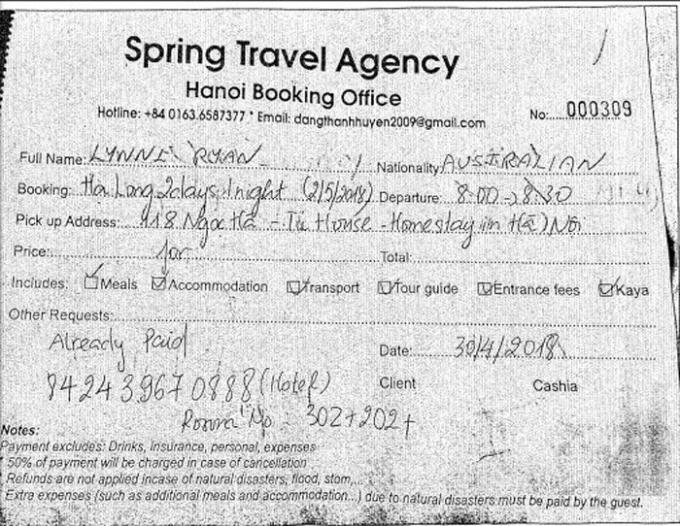 Spring Travel Agency
Hanoi Booking Office
Hotline: +84 0163.6587377 * Email: dangthanhhuyen2009@gmail.com
No: 000309
Full Name: LYNNE RYAN Nationality: AUSTRALIAN
Booking: Ha Long 2days 1night (2/5/2018) Departure: 8:00 - 8:30
Pick up Address: 118 Ngọc Hà - Tu House - Homestay in Hà Nội
Price: Total:
Includes: Meals Accommodation Transport Tour guide Entrance fees Kaya
Other Requests:
Already Paid
Date: 30/4/2018
842439670888 (Hotel) Client Cashia
Room No: 302+202+
Notes:
Payment excludes: Drinks, insurance, personal, expenses
50% of payment will be charged in case of cancellation
Refunds are not applied incase of natural disasters, flood, stom,...
Extra expenses (such as additional meals and accommodation...) due to natural disasters must be paid by the guest.